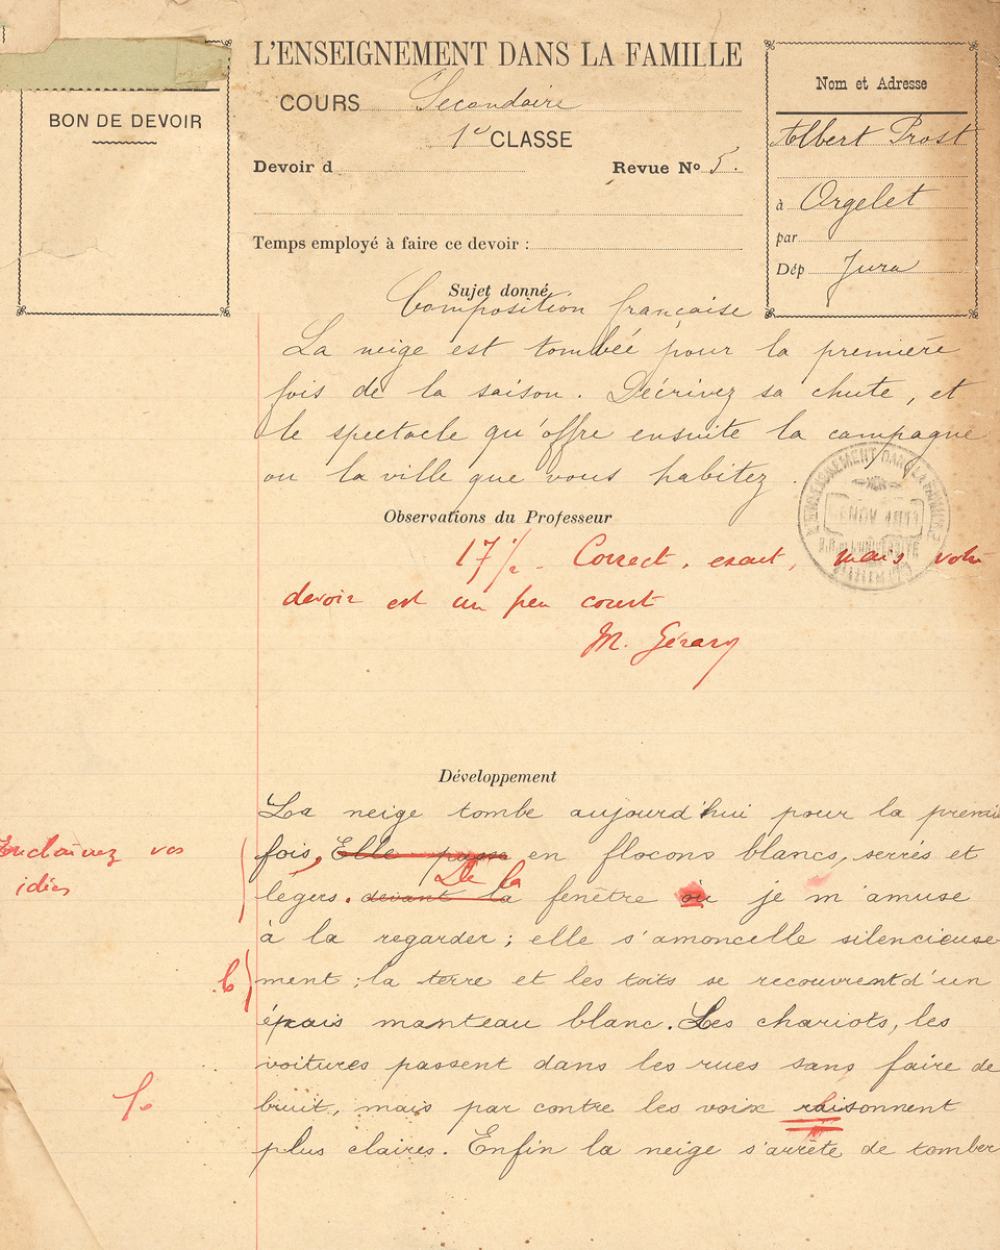 L'ENSEIGNEMENT DANS LA FAMILLE
COURS Secondaire
1re CLASSE
Devoir d
Revue No 5.
Temps employé à faire ce devoir :
BON DE DEVOIR
Nom et Adresse
Albert Prost
à Orgelet
par
Dép Jura
Sujet donné
Composition française
La neige est tombée pour la première
fois de la saison. Décrivez sa chute, et
le spectacle qu'offre ensuite la campagne
ou la ville que vous habitez.
L'ENSEIGNEMENT DANS LA FAMILLE
NOV
Observations du Professeur
17 1/2. Correct, exact, mais votre
devoir est un peu court
M. Gérary
Développement
La neige tombe aujourd'hui pour la premiè
fois, Elle passe en flocons blancs, serrés et
De la
légers. devant la fenêtre où je m'amuse
à la regarder ; elle s'amoncelle silencieuse
ment ; la terre et les toits se recouvrent d'un
épais manteau blanc. Les chariots, les
voitures passent dans les rues sans faire de
bruit, mais par contre les voix raisonnent
plus claires. Enfin la neige s'arrête de tomber
Enchaînez vos
idées